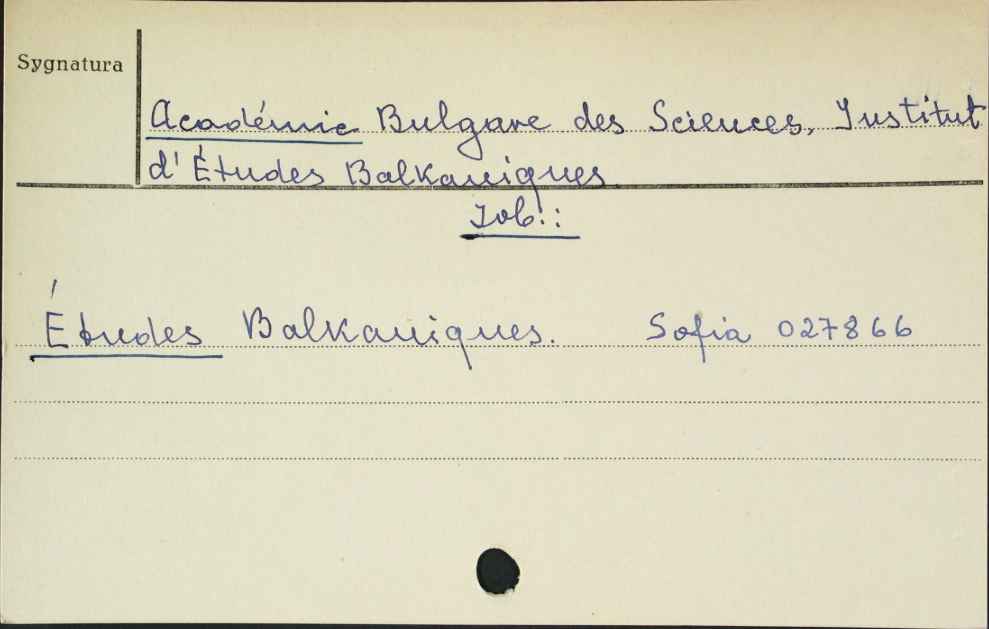 Sygnatura
Académie Bulgare des Sciences, Institut
d'Études Balkaniques
Zob.:
Études Balkaniques. Sofia 027866